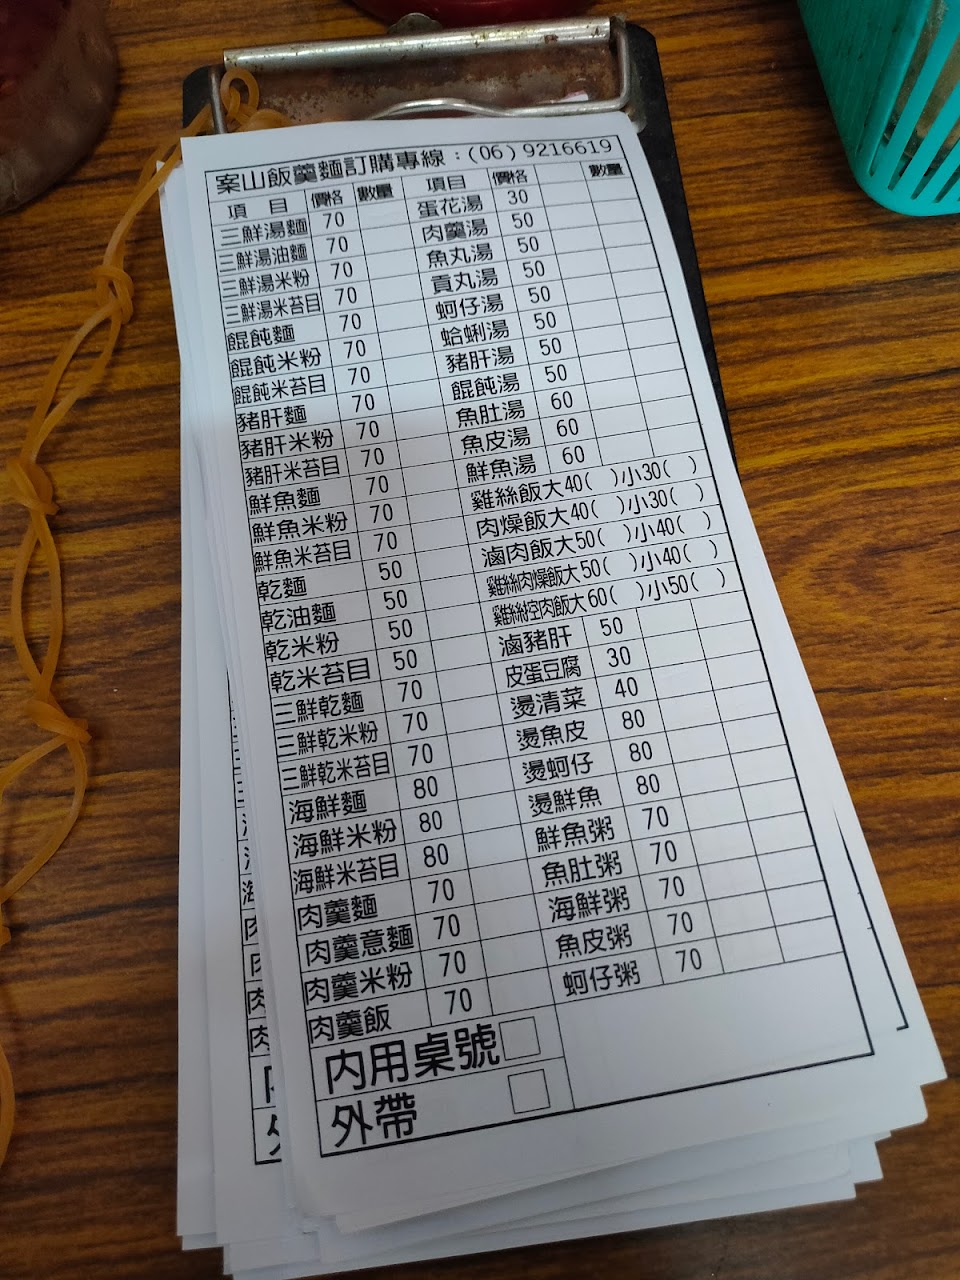 案山飯羹麵訂購專線：(06)9216619
項 目 價格 數量 項目 價格 數量
三鮮湯麵 70 蛋花湯 30
三鮮湯油麵 70 肉羹湯 50
三鮮湯米粉 70 魚丸湯 50
三鮮湯米苔目 70 貢丸湯 50
餛飩麵 70 蚵仔湯 50
餛飩米粉 70 蛤蜊湯 50
餛飩米苔目 70 豬肝湯 50
豬肝麵 70 餛飩湯 50
豬肝米粉 70 魚肚湯 60
豬肝米苔目 70 魚皮湯 60
鮮魚麵 70 鮮魚湯 60
鮮魚米粉 70 雞絲飯大40( )小30( )
鮮魚米苔目 70 肉燥飯大40( )小30( )
乾麵 50 滷肉飯大50( )小40( )
乾油麵 50 雞絲肉燥飯大50( )小40( )
乾米粉 50 雞絲控肉飯大60( )小50( )
乾米苔目 50 滷豬肝 50
三鮮乾麵 70 皮蛋豆腐 30
三鮮乾米粉 70 燙清菜 40
三鮮乾米苔目 70 燙魚皮 80
海鮮麵 80 燙蚵仔 80
海鮮米粉 80 燙鮮魚 80
海鮮米苔目 80 鮮魚粥 70
肉羹麵 70 魚肚粥 70
肉羹意麵 70 海鮮粥 70
肉羹米粉 70 魚皮粥 70
肉羹飯 70 蚵仔粥 70
內用桌號
外帶